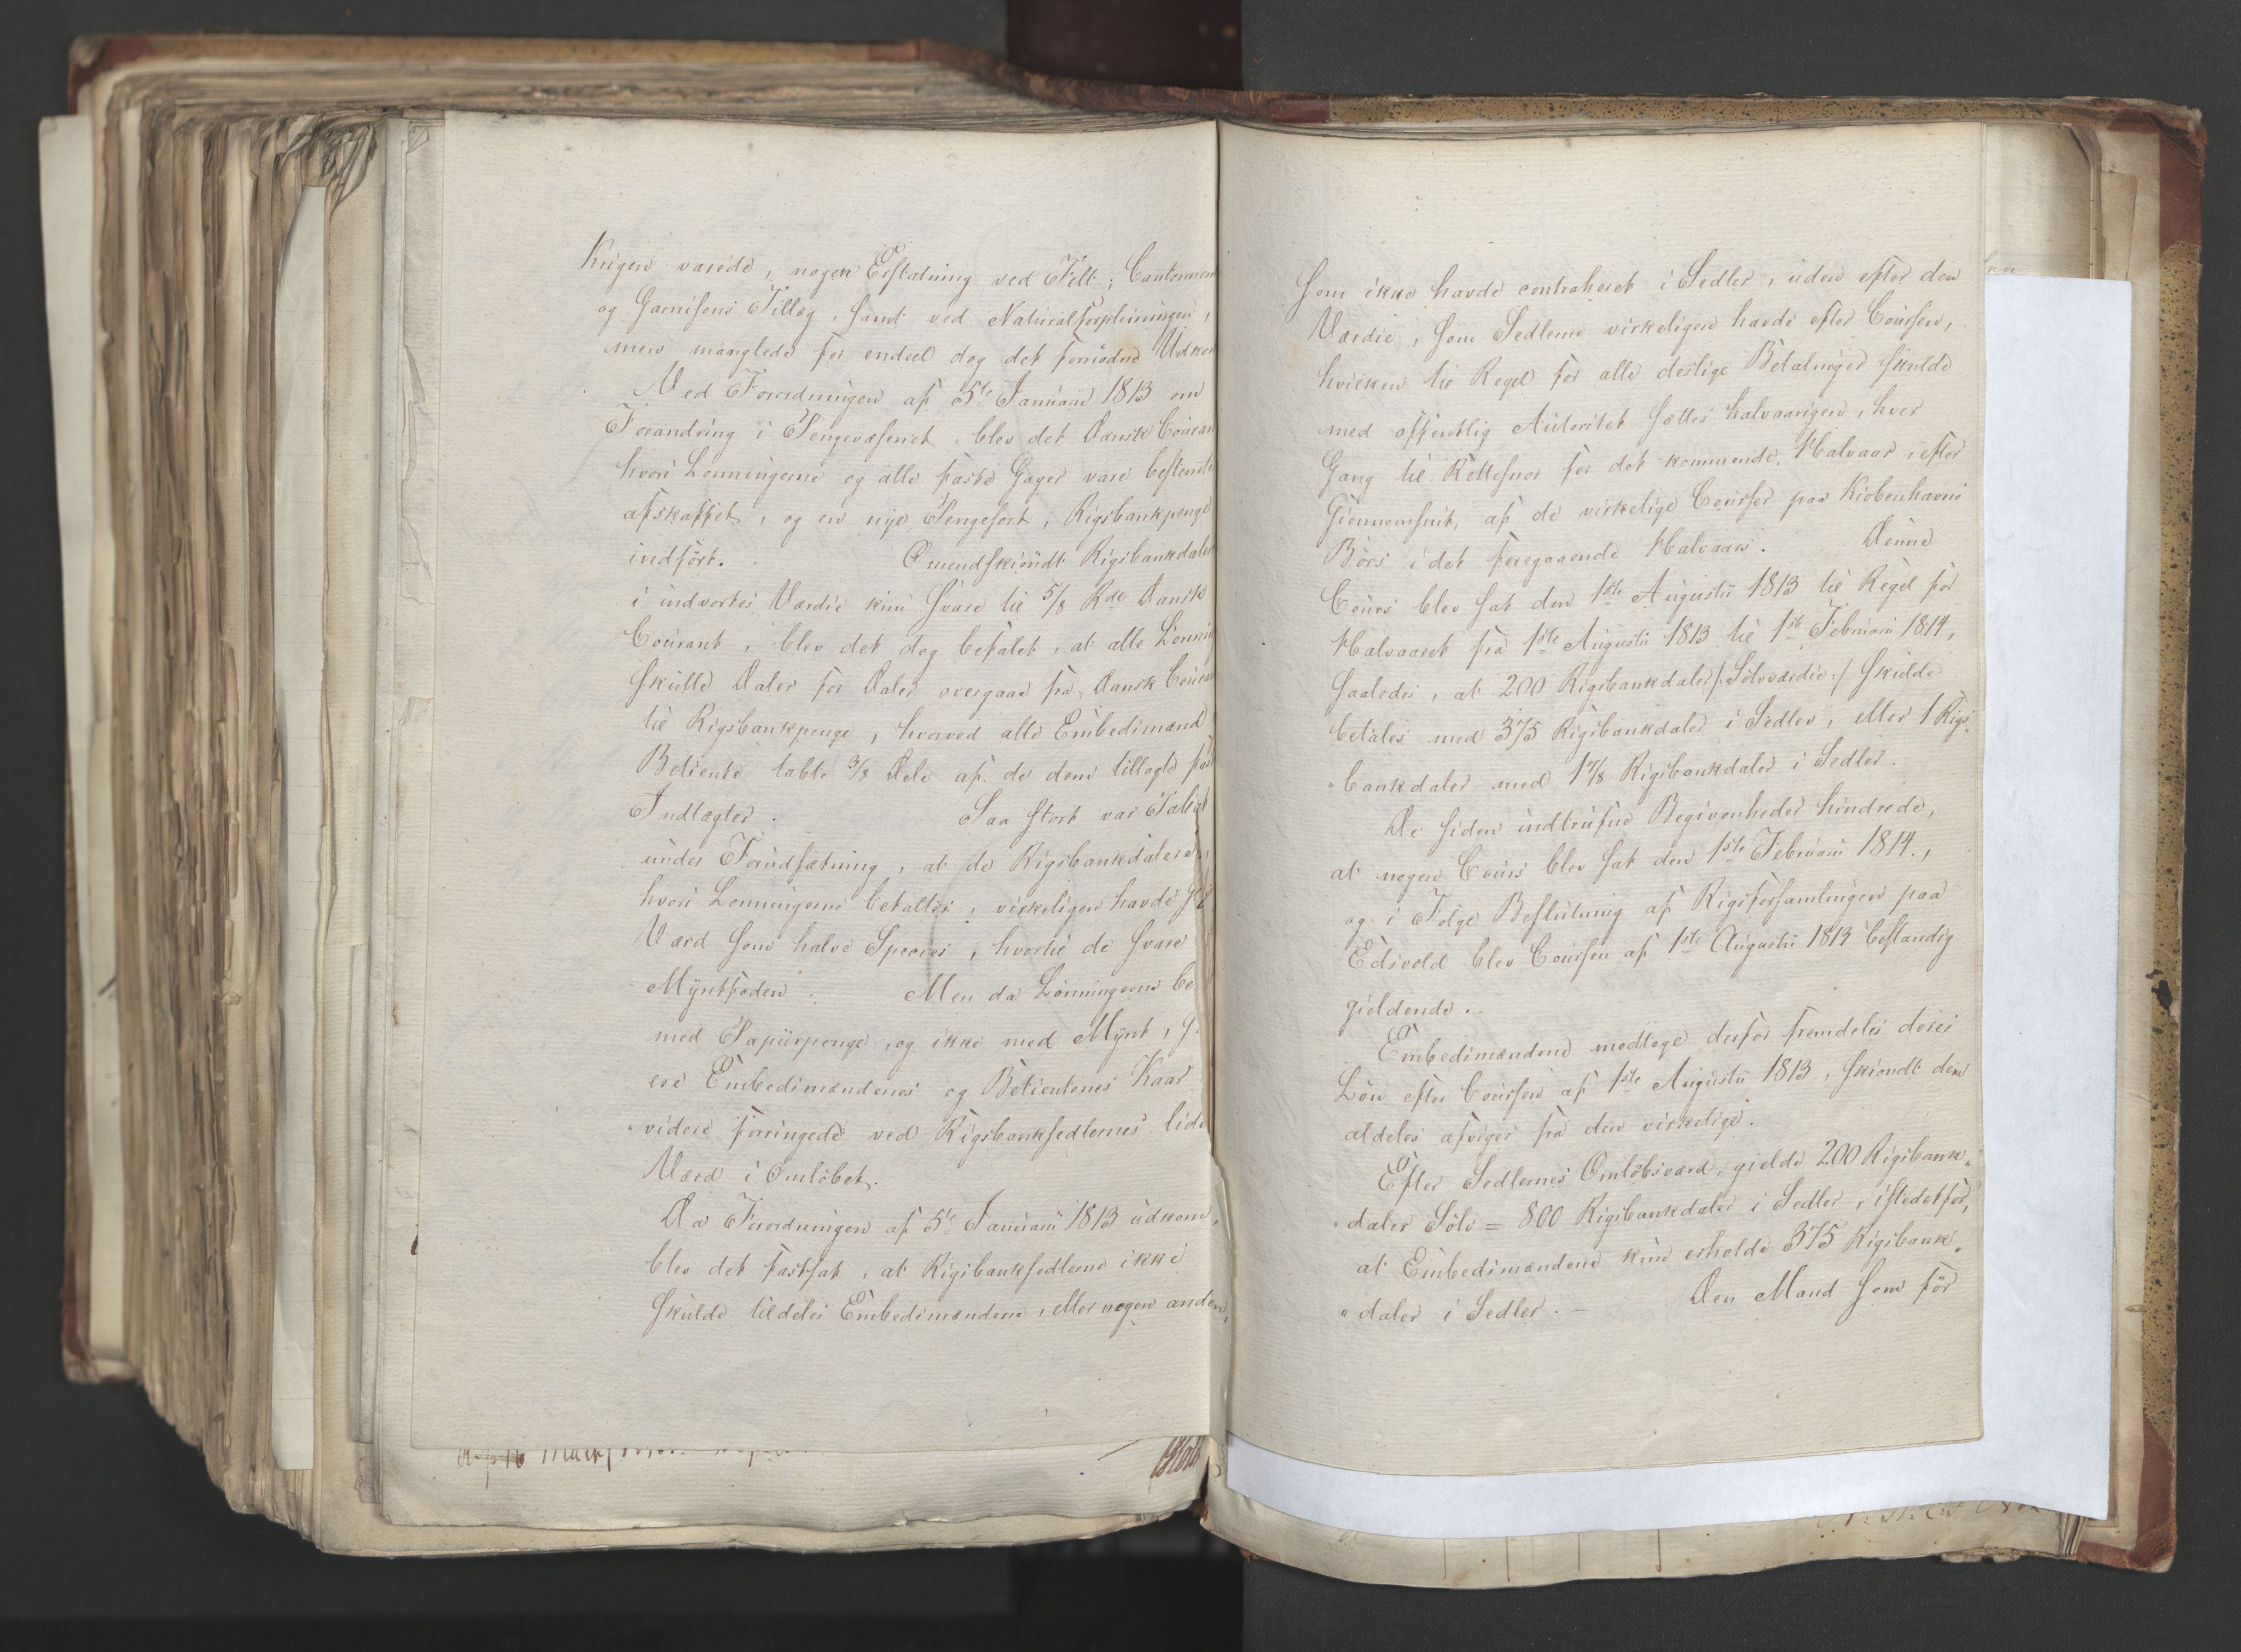 Krigen varede, nogen Erstatning ved Felt, Cantonnem
og Garnisons Tillæg, samt ved Naturalforpleiningen,
men manglede for endeel dog det fornødne Udkom
Ved Forordningen af 5te Januarii 1813 om
Forandring i Pengevæsenet blev det Dansk Couran
hvori Lønningerne og alle faste Gager vare bestemte
afskaffet, og en nye Pengesort, Rigsbankpenge
indført. Omendskiöndt Rigsbankdaler
i indvortes Værdie kun svare til 5/8 Rdr Dansk
Courant, blev det dog befalet, at alle Lønnin
skulle Daler for Daler overgaae fra Dansk Couran
til Rigsbankpenge, hvorved alle Embedsmænd
Betiente tabte 3/8 Dele af de dem tillagte fas
Indtægter. Saa stort var Tabet
under Forudsætning, at de Rigsbankdalere,
hvori Lønningerne betaltes, virkeligen havde
Værd som halve Species, hvortil de svare
Myntfoden. Men da Lønningerne be
med Papiirpenge, og ikke med Mynt,
ere Embedsmændenes og Betientenes Kaar
videre forringede ved Rigsbanksedlernes lide
Værd i Omløbet.
Da Forordningen af 5te Januarii 1813 udkom,
blev det fastsat, at Rigsbanksedlerne ikke
skulde tildeles Embedsmændene, eller nogen anden,
som ikke havde contraheret i Sedler, uden efter den
Værdie, som Sedlerne virkeligen havde efter Coursen,
hvilken til Regel for alle deslige Betalinger skulde
med offentlig Autoritet sættes halvaarigen, hver
Gang til Rettesnor for det kommende Halvaar, efter
Giennemsnit, af de virkelige Courser paa Kiøbenhavns
Börs i det foregaaende Halvaar. Denne
Cours blev sat den 1ste Augustii 1813 til Regel for
Halvaaret fra 1ste Augustii 1813 til 1ste Februarii 1814,
saaledes, at 200 Rigsbankdaler /: Sølvværdie :/ skulde
betales med 375 Rigsbankdaler i Sedler, eller 1 Rigs-
"bankdaler med 1 7/8 Rigsbankdaler i Sedler.
De siden indtrufne Begivenheder hindrede,
at nogen Cours blev sat den 1ste Februarii 1814.,
og i Følge Beslutning af Rigsforsamlingen paa
Edsvold blev Coursen af 1ste Augustii 1813 bestandig
gieldende.
Embedsmændene modtoge derfor fremdeles deres
Løn efter Coursen af 1ste Augustii 1813, skiøndt den
aldeles afviger fra den virkelige.
Efter Sedlernes Omløbsværd, gielde 200 Rigsbank"
"daler Sölv = 800 Rigsbankdaler i Sedler, istedetfor,
at Embedsmændene kun erholde 375 Rigsbank"
"daler i Sedler. – Den Mand som før